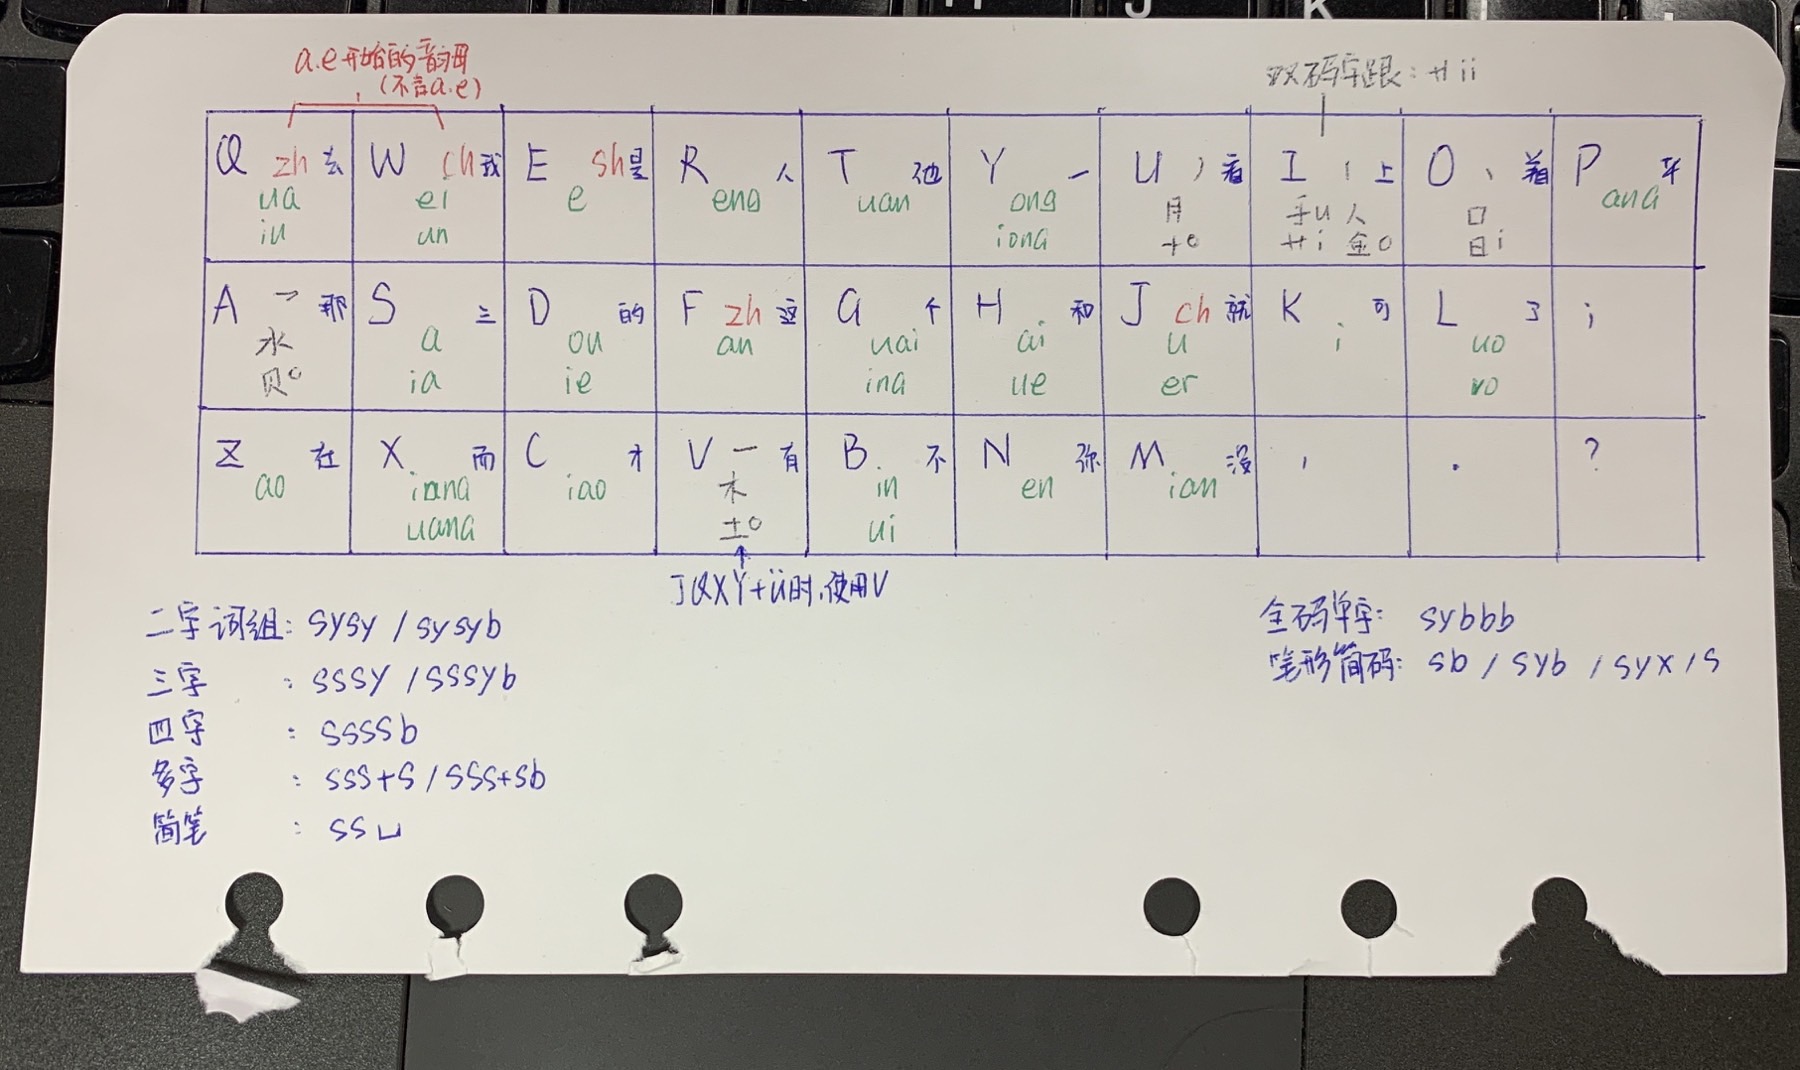 a.e开始的音韵母
(不含a.e)
双码字跟：艹ii
Q zh 去
ua
iu
W ch 我
ei
un
E sh 是
e
R 人
eng
T 他
uan
Y 一
ong
iong
U 丿 看
月
十o
I 丨 上
手u 人
艹i 金o
O 丶 着
口
日i
P 平
ang
A 乛 那
水
贝o
S 三
a
ia
D 的
ou
ie
F zh 这
an
G 个
uai
ing
H 和
ai
ue
J ch 就
u
er
K 可
i
L 了
uo
vo
;
Z 在
ao
X 而
iang
uang
C 才
iao
V 一 有
木
土o
B 不
in
ui
N 你
en
M 没
ian
,
.
?
JQXY+ü时,使用V
二字词组: sysy / sysyb
三字 : sssy / sssyb
四字 : ssssb
多字 : sss+s / sss+sb
简笔 : ss⊔
全码单字: sybbb
笔形简码: sb / syb / syx / s